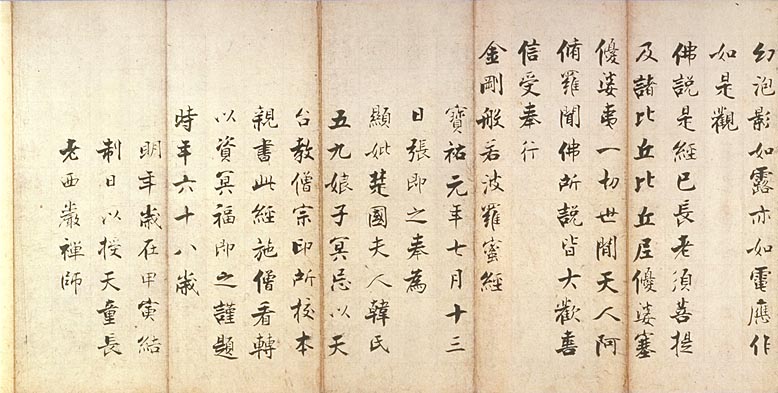 幻泡影如露亦如電應作
如是觀
佛說是經已長老須菩提
及諸比丘比丘尼優婆塞
優婆夷一切世間天人阿
脩羅聞佛所說皆大歡喜
信受奉行
金剛般若波羅蜜經
寶祐元年七月十三
日張即之奉為
顯妣楚國夫人韓氏
五九娘子冥忌以天
台教僧宗印所校本
親書此經施僧看轉
以資冥福即之謹題
時年六十八歲
明年歲在甲寅結
制日以授天童長
老西巖禪師